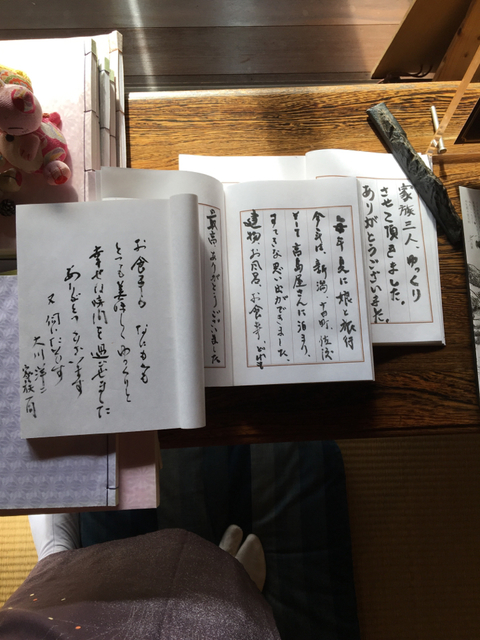 家族三人、ゆっくり
させて頂きました。
ありがとうございました。
毎年夏に娘と旅行
今年は、新潟、佐渡
そして高島屋さんに泊まり、
すてきな思い出ができました。
建物、お風呂、お食事、とても
最高 ありがとうございました
お食事も なにもかも
とっても美味しくゆっくりと
幸せな時間を過ごせました
ありがとうございます
又 伺いたいです
大川
家族一同